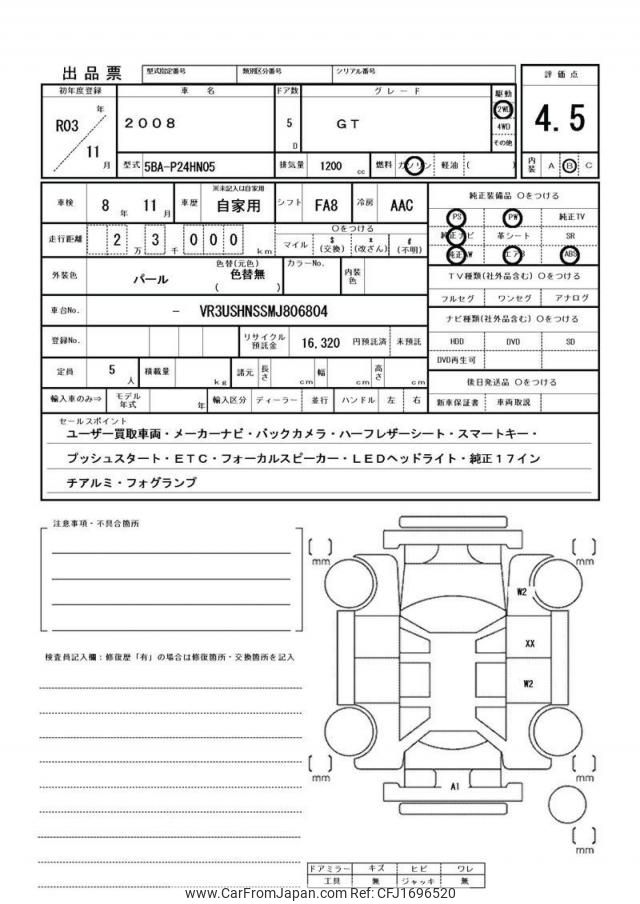 出品票
型式指定番号 類別区分番号 シリアル番号
評価点
4.5
初年度登録 車名 ドア数 グレード 駆動
R03 年 11 月
2008 5 D GT
2WD
4WD
その他
型式 5BA-P24HN05 排気量 1200 cc 燃料 ガソリン 軽油 ( )
内装 A B C
車検 8 年 11 月 車歴 ※未記入は自家用 自家用 シフト FA8 冷房 AAC
走行距離 2 万 3 千 0 0 0 km
○をつける
マイル $ (交換) x (改ざん) # (不明)
外装色 パール 色替(元色) 色替無 ( ) カラーNo. 内装色
車台No. - VR3USHNSSMJ806804
登録No. リサイクル預託金 16,320 円預託済 未預託
定員 5 人 積載量 kg 諸元 長さ cm 幅 cm 高さ cm
輸入車のみ⇒ モデル年式 年 輸入区分 ディーラー 並行 ハンドル 左 右
純正装備品 ○をつける
PS PW 純正TV
純正ナビ 革シート SR
純正AW エアB ABS
TV種類(社外品含む) ○をつける
フルセグ ワンセグ アナログ
ナビ種類(社外品含む) ○をつける
HDD DVD SD
DVD再生可
後日発送品 ○をつける
新車保証書 車両取説
セールスポイント
ユーザー買取車両・メーカーナビ・バックカメラ・ハーフレザーシート・スマートキー・
プッシュスタート・ETC・フォーカルスピーカー・LEDヘッドライト・純正17イン
チアルミ・フォグランプ
注意事項・不具合箇所
検査員記入欄:修復歴「有」の場合は修復箇所・交換箇所を記入
[ ] mm
[ ] mm
W2
XX
W2
[ ] mm
[ ] mm
A1
[ ] mm
ドアミラー キズ ヒビ ワレ
工具 無 ジャッキ 無
www.CarFromJapan.com Ref: CFJ1696520